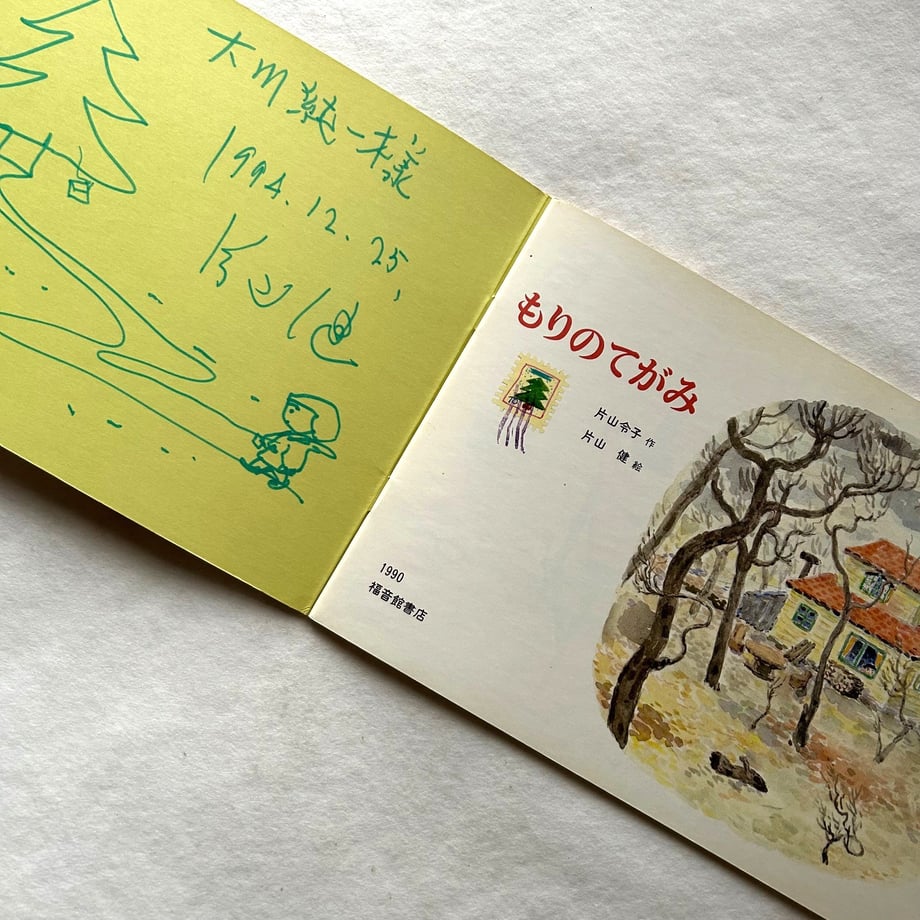 大川純一様
1994.12.25,
片山健
もりのてがみ
片山令子 作
片山 健 絵
1990
福音館書店